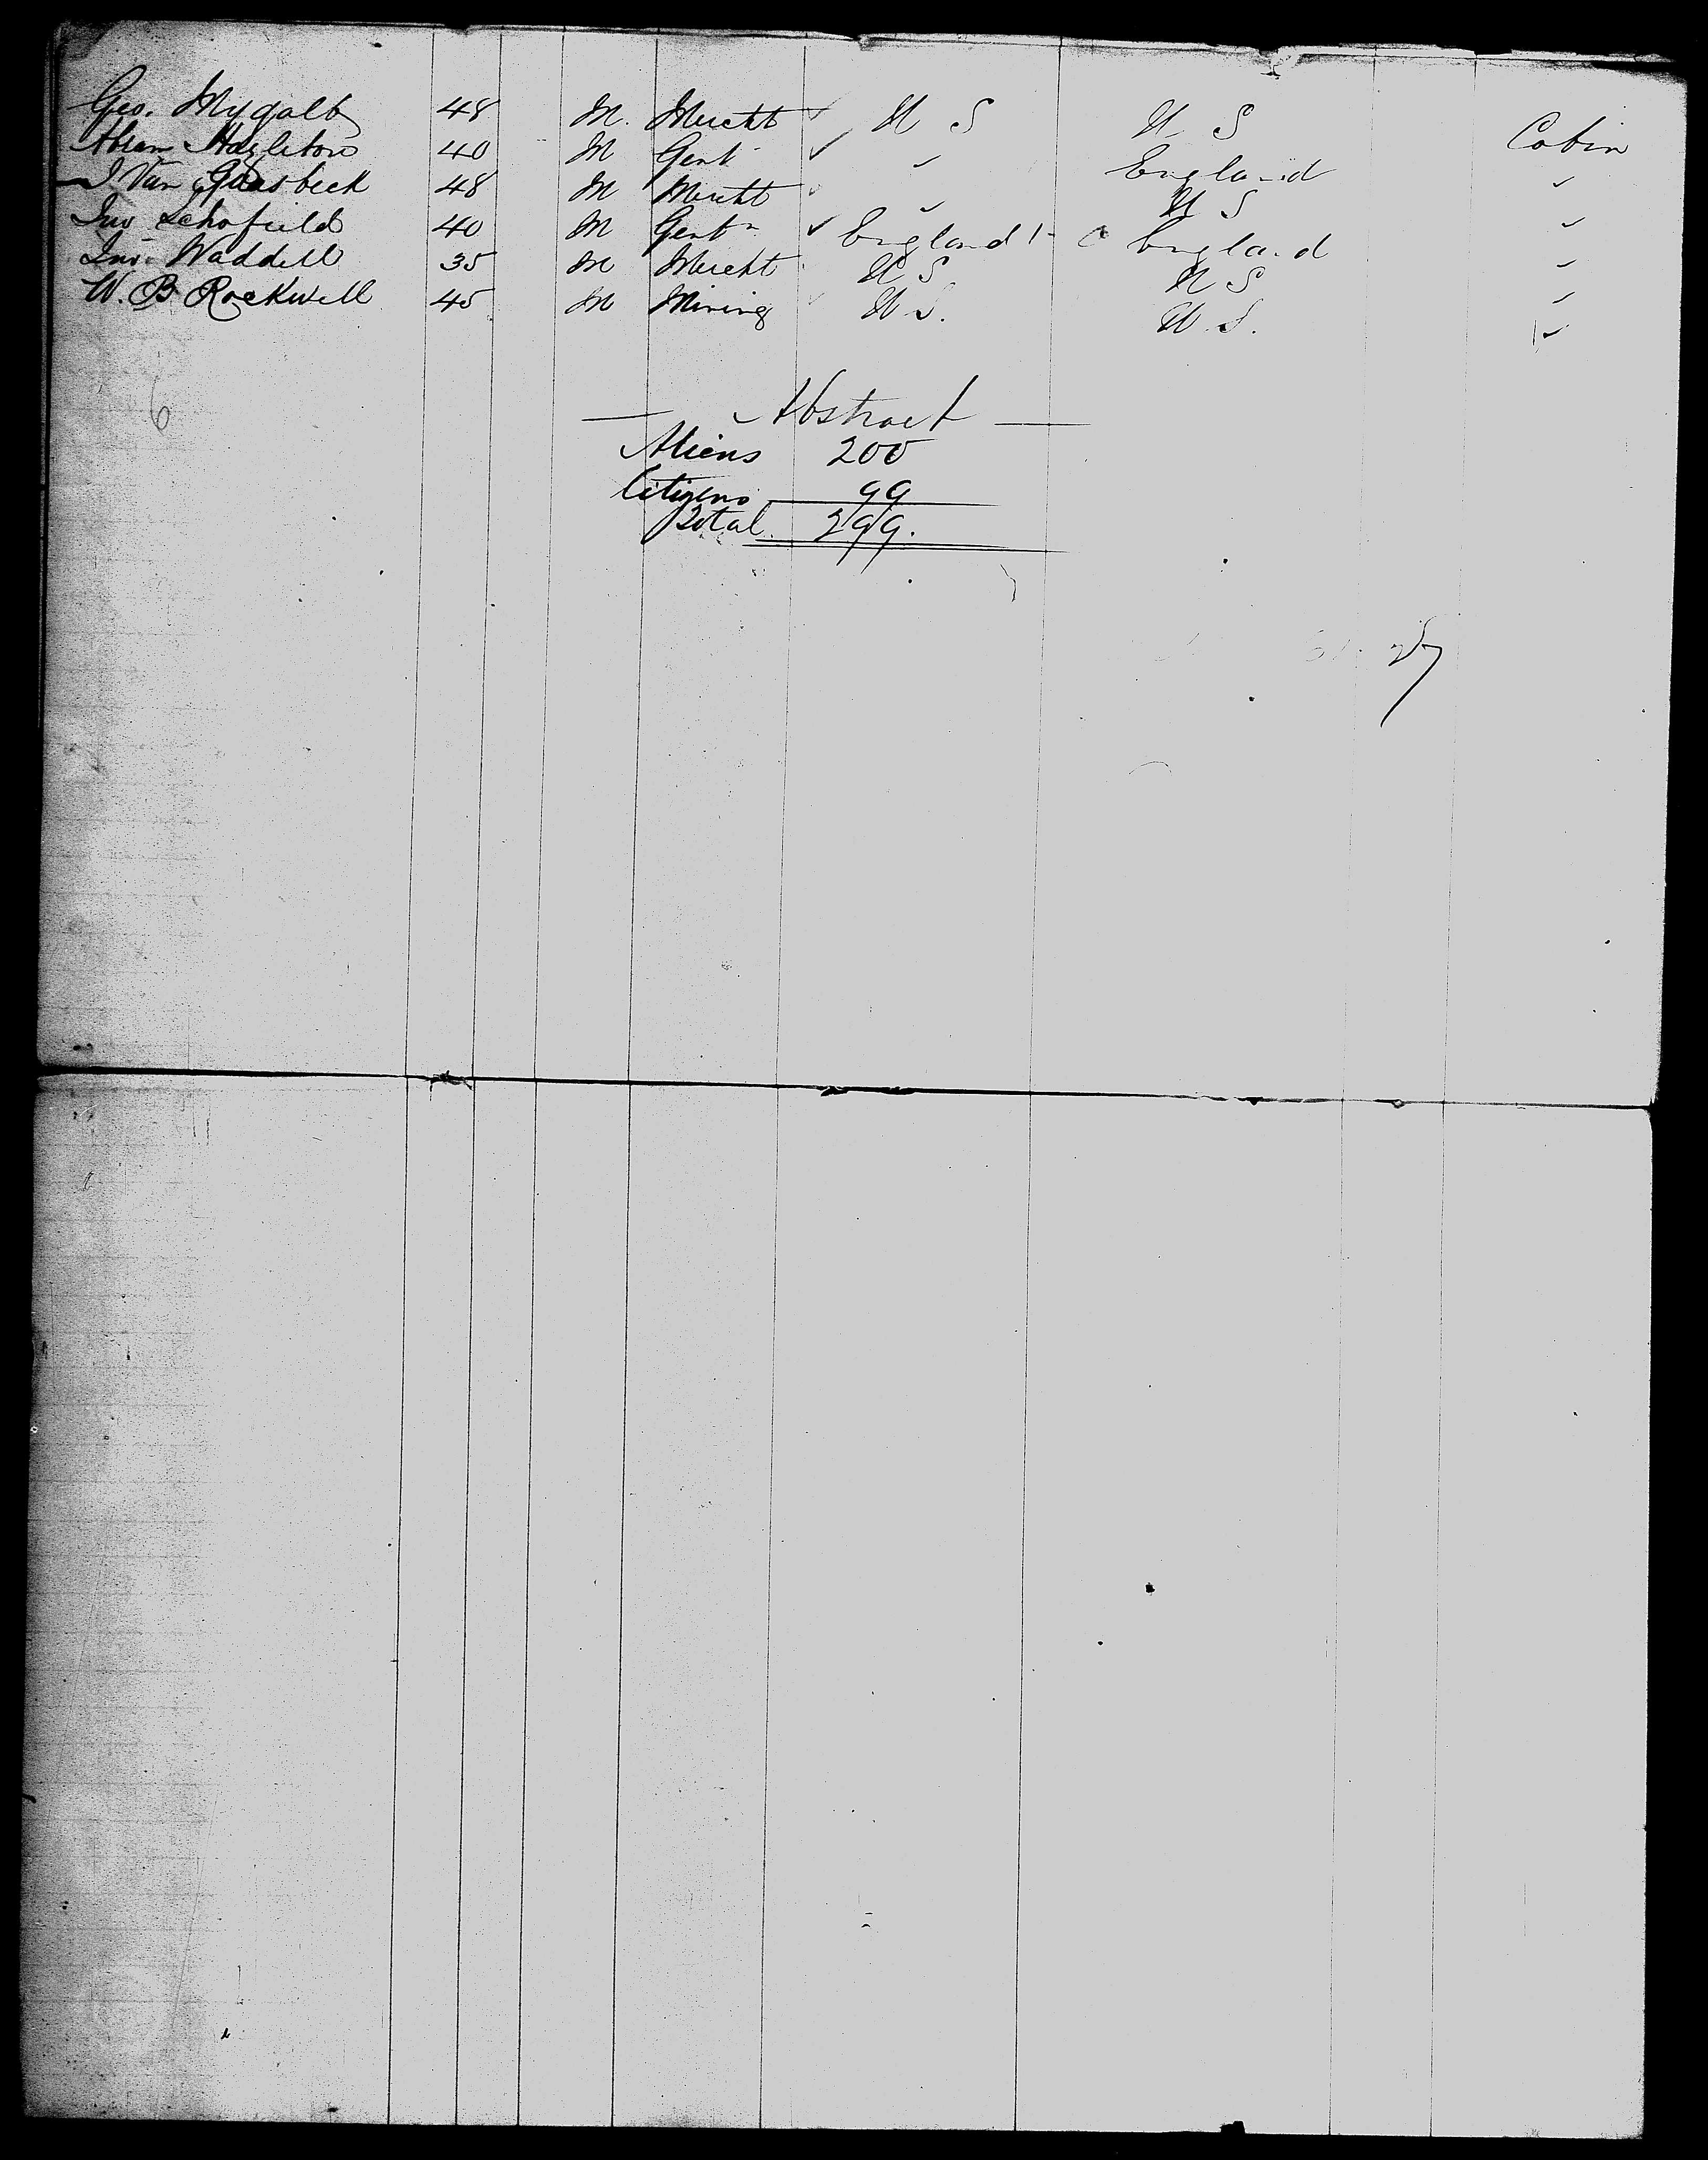 Geo. Mygatt 48 M. Mercht U S U S Cabin
Abram Hazleton 40 M Gent " England "
J Van Gaasbeck 48 M Mercht " U S "
Jno Schofield 40 M Gentn England 1 England "
Jno. Waddell 35 M Mercht U S U S "
W. B Rockwell 45 M Mining U. S. U. S. "
6
— Abstract —
Aliens 200
Citizens 99
Total 299.